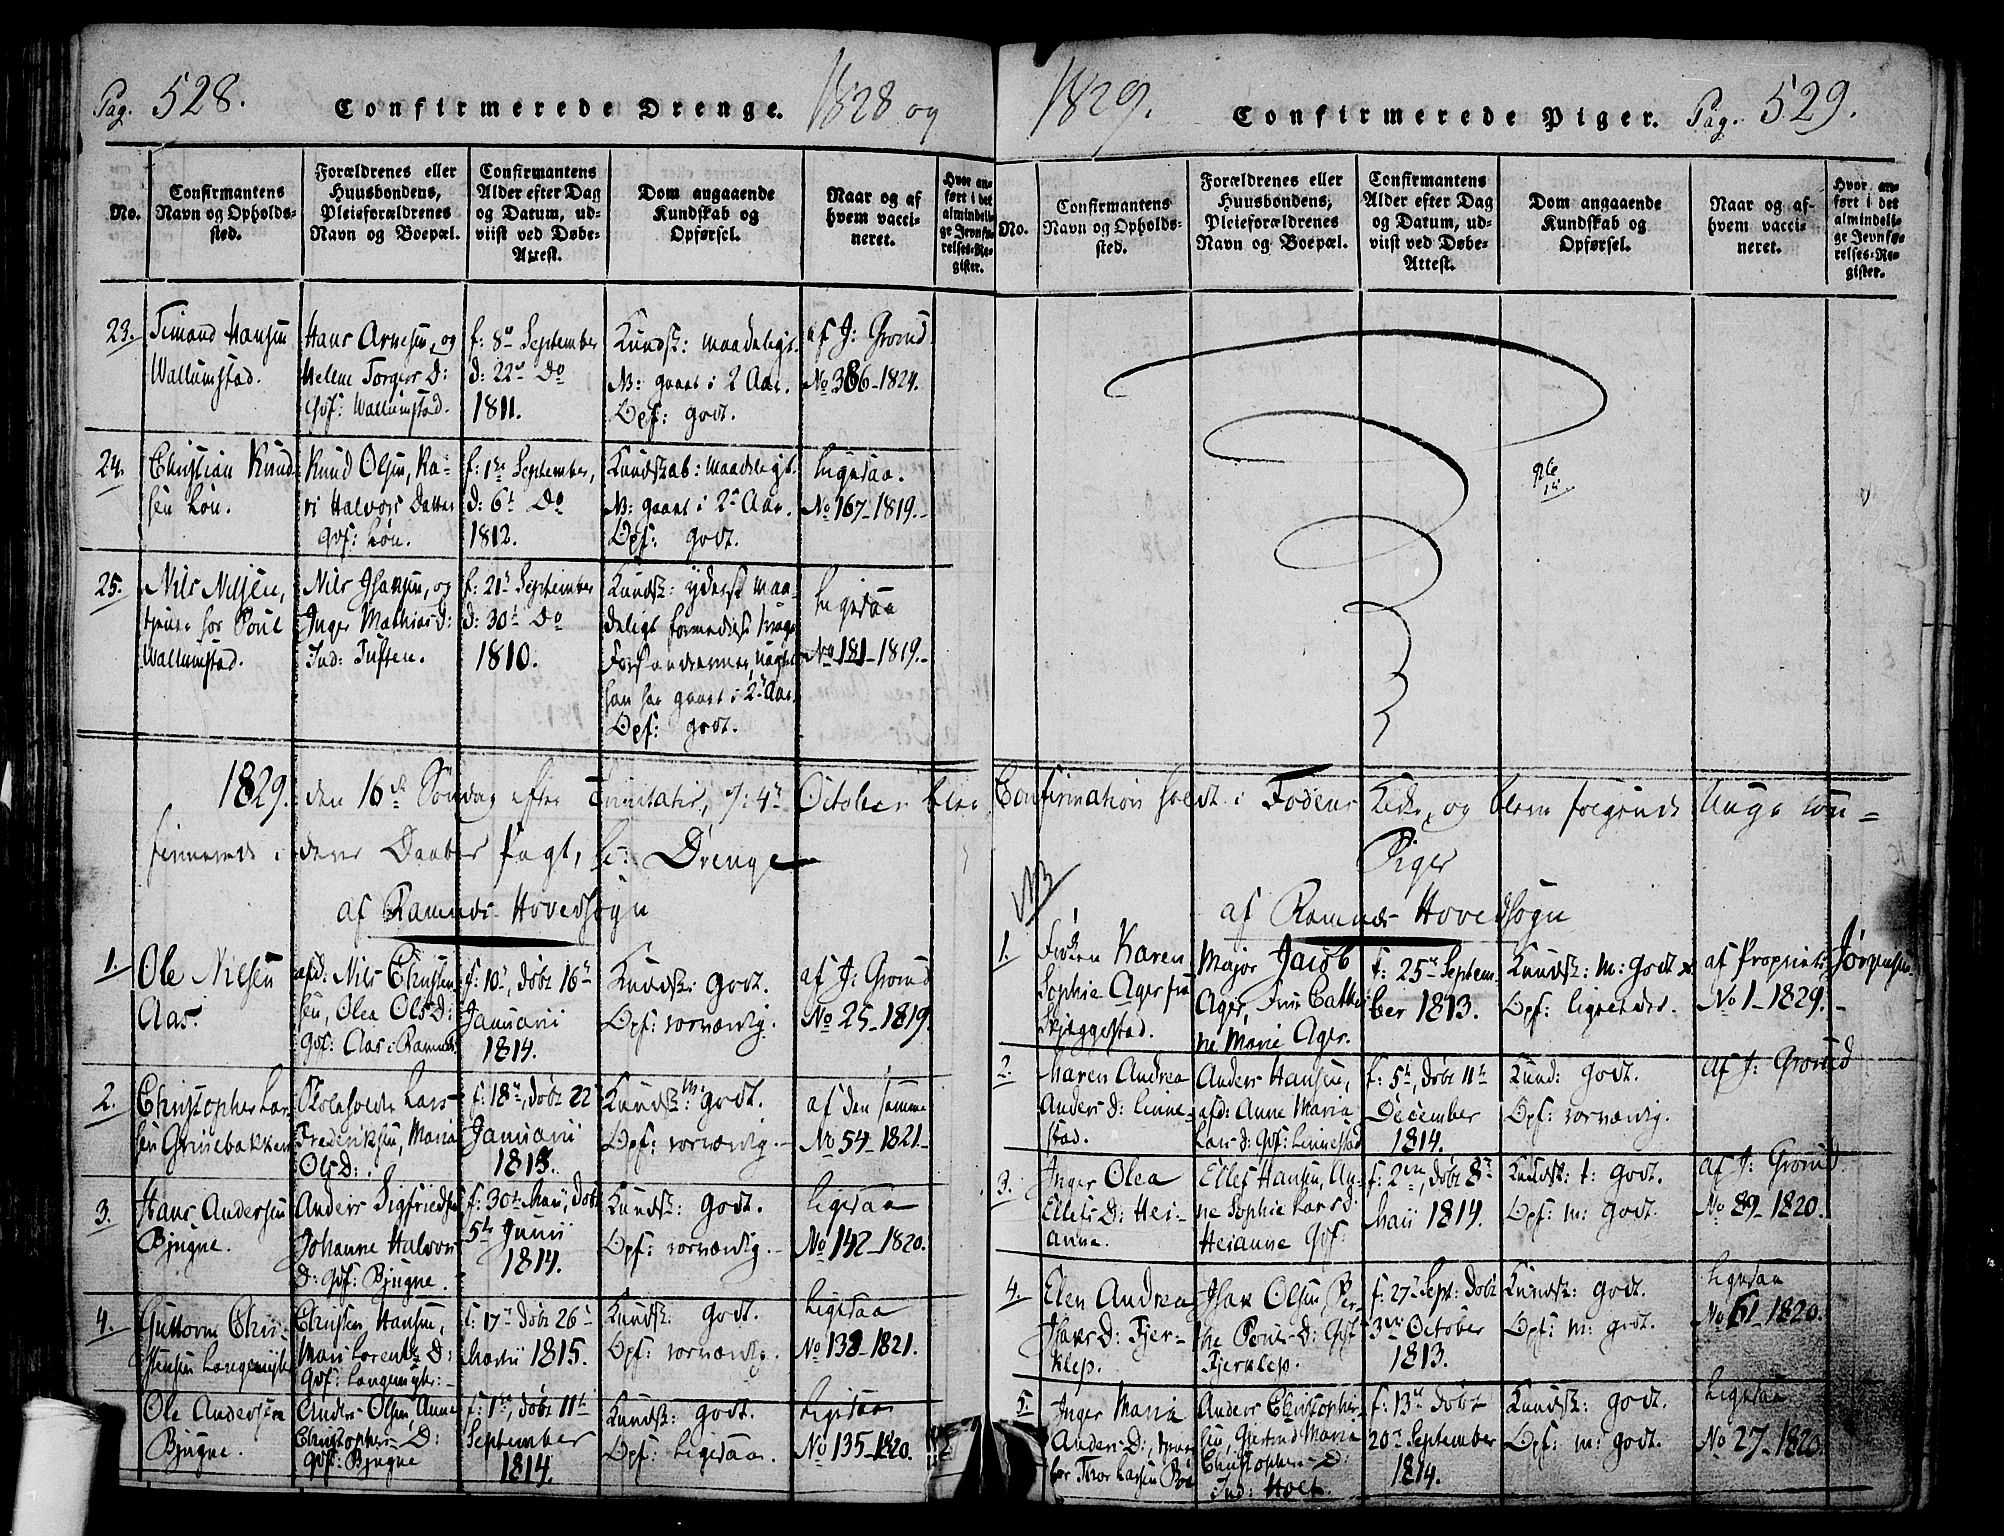 Pag. 528. Confirmerede Drenge. 1828 og
No.
Confirmantens
Navn og Opholds-
sted.
Forældrenes eller
Huusbondens,
Pleieforældrenes
Navn og Boepæl.
Confirmantens
Alder efter Dag
og Datum, ud-
viist ved Døbe-
Attest.
Dom angaaende
Kundskab og
Opførsel.
Naar og af
hvem vacci-
neret.
Hvor an-
ført i det
almindeli-
ge Jevnfø-
relses-Re-
gister.
23.
Simand Hansen
Wallumstad.
Hans Arnesen, og
Helene Torgers D:
Gdf: Wallumstad.
f: 8de September
d: 22de Do
1811.
Kundsk: maadeligt.
NB: gaaet i 2 Aar.
Opf: godt.
af J: Grorud
No 386-1824.
24.
Christian Knud-
sen Løu.
Knud Olsen, Ka-
ri Halvors Datter
Gdf: Løu.
f: 1ste September,
d: 6te Do
1812.
Kundskab: maadeligt.
NB: gaaet i 2de Aar.
Opf: godt.
Ligesaa.
No 167-1819.-
25.
Nils Nilsen,
tjener hos Poul
Wallumstad.
Nils Isaksen, og
Inger Mathias D:
Ind: Tuften.
f: 21de September
d: 30te Do
1810.
Kundsk: yderst maa-
deligt formedelst svage
Forstandsevner, uagtet
han har gaaet i 2de Aar.
Opf: godt.
Ligesaa
No 181-1819.-
1829. den 16de Søndag efter Trinitatis, : 4de October blev
firmerede i deres Daabes Pagt, : Drenge
af Ramnes Hovedsogn
1.
Ole Nilsen
Aas.
afd: Nils Christen-
sen, Olea Ols D:
Gdf: Aas i Ramnes.
f: 10de, døbt 16de
Januarii
1814.
Kundsk: godt.
Opf: sorværdig.
af J: Grorud
No 25-1819.
2.
Christopher Lar-
sen Grinebakken
Skoleholder Lars
Frederiksen, Maria
Ols D:
f: 18de, døbt 22de
Januarii
1815.
Kundsk: m: godt.
Opf: sorværdig.-
af den samme
No 54-1821-
3.
Hans Andersen
Bjugne.
Anders Sigfriedsen
Johanne Halvor-
D: Gdf: Bjugne.
f: 30te Maii, døbt
5te Junii
1814.
Kundsk: godt.
Opf: sorværdig.-
Ligesaa
No 142-1820.
4.
Guttorm Chri-
stensen Langemyhr
Christen Hansen,
Mari Lorentz D:
Gdf: Langemyhr:-
f: 17de døbt 26de
Martii 1815.
Kundsk: godt.
Opf: sorværdig.
Ligesaa
No 138-1821.
Ole Andersen
Bjugne.
Anders Olsen, Anne
Christophers D:
Gdf: Bjugne
f: 1ste, døbt 11te
September
1814.
Kundsk: godt.
Opf: Ligesaa.
Ligesaa
No 135-1820.
1829. Confirmerede Piger. Pag. 529.
No.
Confirmantens
Navn og Opholds-
sted.
Forældrenes eller
Huusbondens,
Pleieforældrenes
Navn og Boepæl.
Confirmantens
Alder efter Dag
og Datum, ud-
viist ved Døbe-
Attest.
Dom angaaende
Kundskab og
Opførsel.
Naar og af-
hvem vacci-
neret.
Hvor an-
ført i det
almindeli-
ge Jevnfø-
relses-Re-
gister.
Confirmation holdt i Fodens Kirke, og bleve følgende Unge con-
Piger
NB
af Ramnes Hovedsogn
1.
Frøken Karen
Sophie Ager fra
Skjeggestad.
Major Jacob
Ager, Frue Cathri-
ne Marie Ager.
f: 25de Septem-
ber 1813.
Kundsk: m: godt
Opf: ligeledes.
af Propriet: Jørgensen
No 1-1829.-
2.
Maren Andrea
Anders D: Linne-
stad.
Anders Hansen,
afd: Anne Maria
Lars D: Gdf: Linnestad
f: 5te, døbt 11te
December
1814.
Kund: godt.
Opf: sorværdig.
af J: Grorud
3.
Inger Olea
Ellefs D: Hei-
anne.
Ellef Hansen, An-
ne Sophie Lars D:
Heianne Gdf:
f: 2den, døbt 8de
Maii 1814.
Kundsk: t: godt.
Opf: m: godt.
af J: Grorud
No 89-1820.
4.
Elen Andrea
Isaks D: Fjer-
klep.
Isak Olsen, Ber-
the Pouls D: Gdf
Fjerklep.
f: 27de Sept: døbt
3die October
1813.
Kundsk: godt.
Opf: m: godt.
Ligesaa
No 61-1820.
5.
Inger Maria
Anders D:, tjener
hos Thor Larsen Bøe
Anders Christopher-
sen, Gjertrud Maria
Christophers D:
Ind: Holt.
f: 13de døbt
20de September
1814.
Kundsk: godt.
Opf: m: godt.
Ligesaa
No 27-1820.